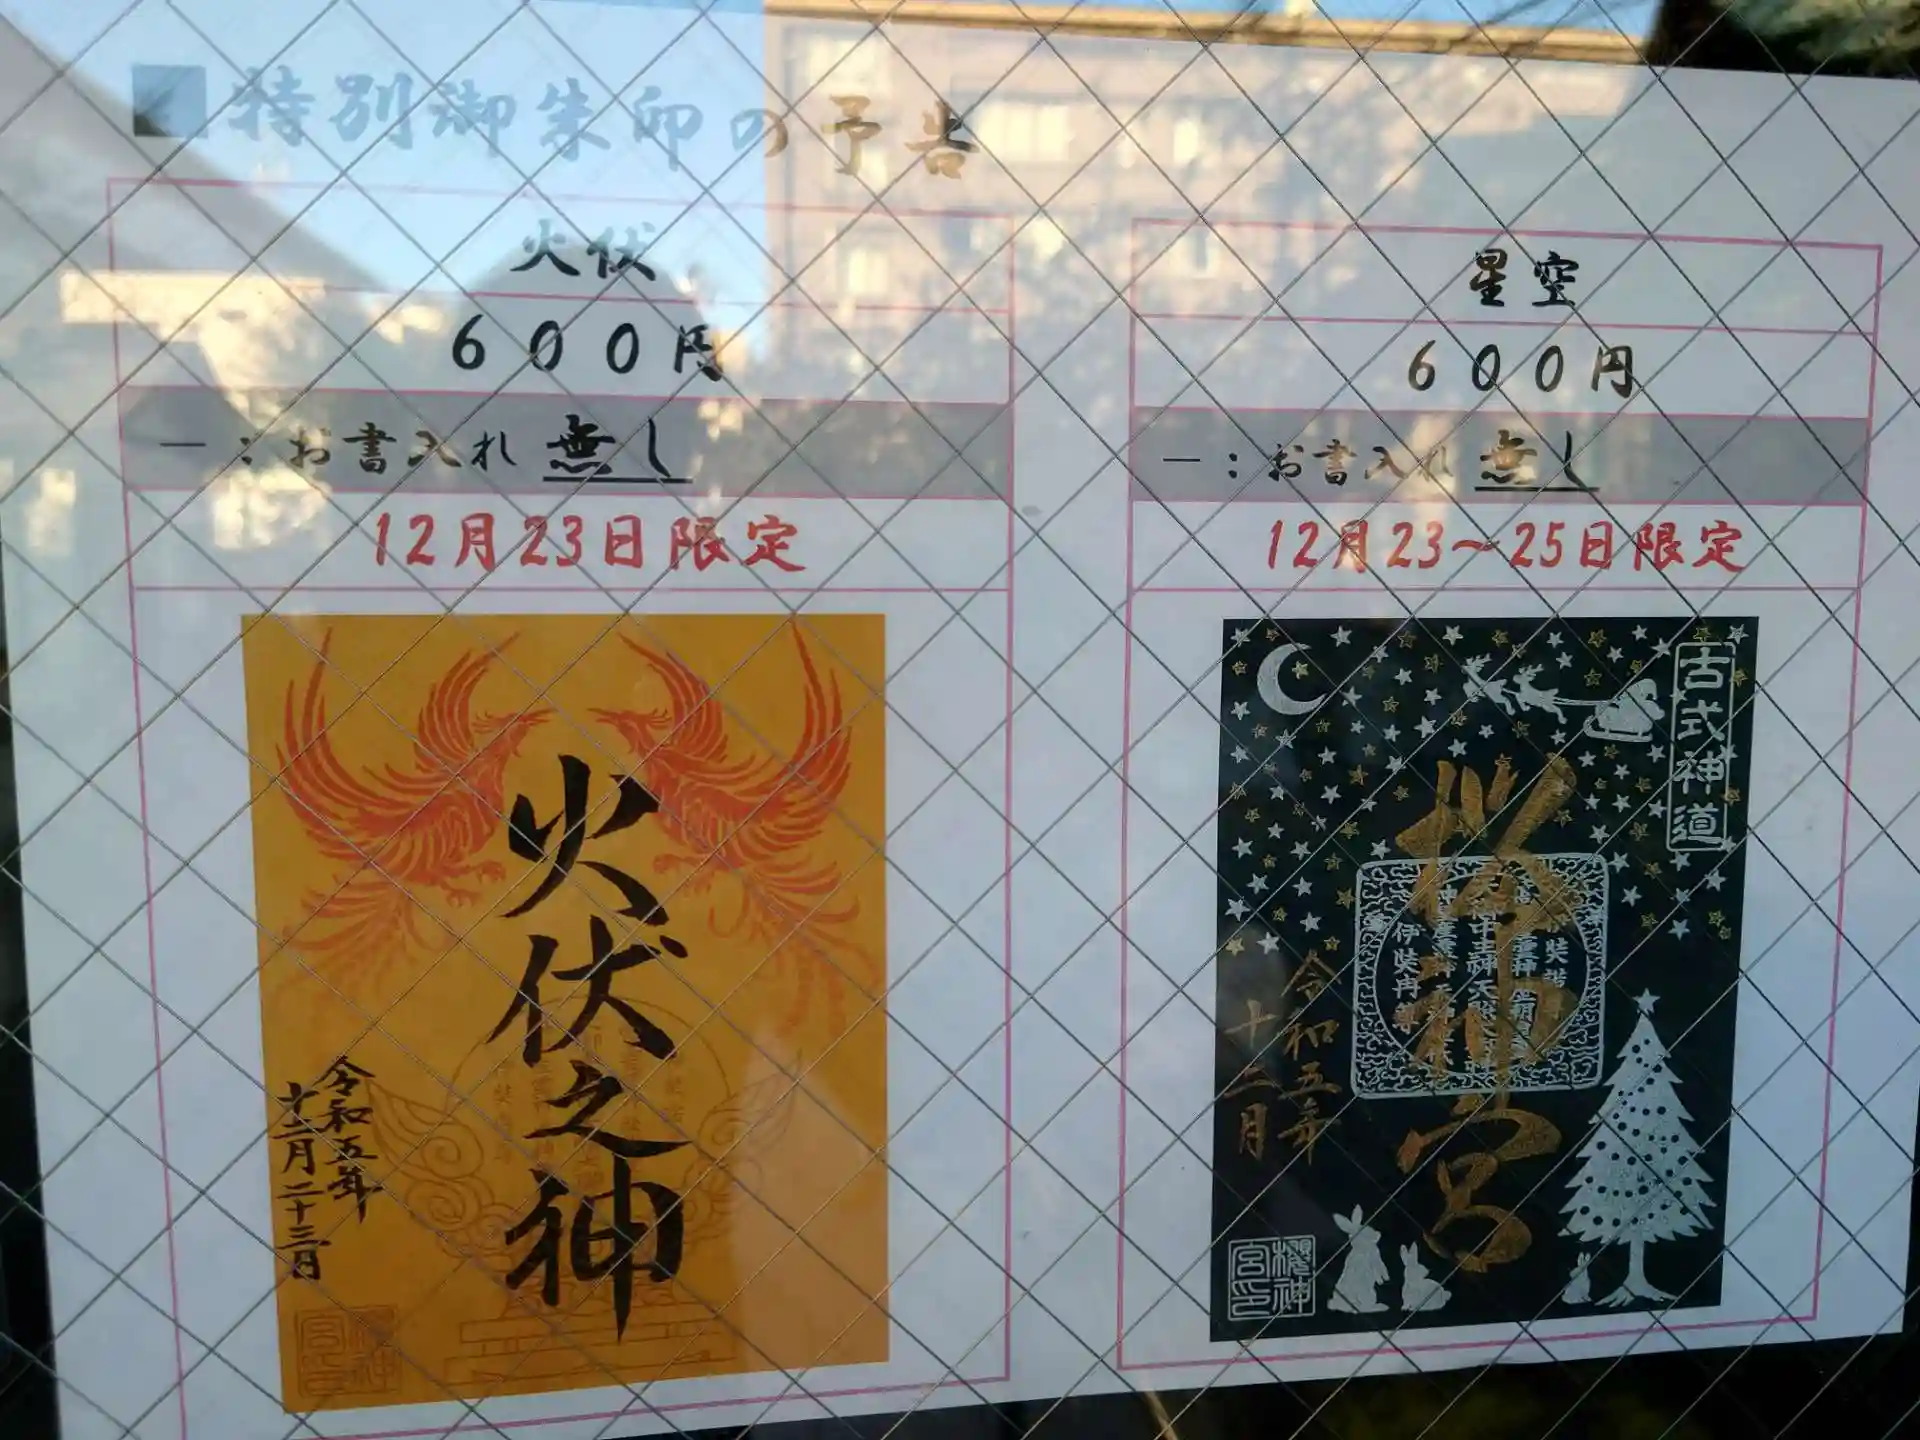 ■特別御朱印の予告
火伏
600円
－：お書入れ無し
12月23日限定
火伏之神
令和五年
十二月二十三日
星空
600円
－：お書入れ無し
12月23～25日限定
古式神道
桜神宮
令和五年
十二月
櫻神
宮印